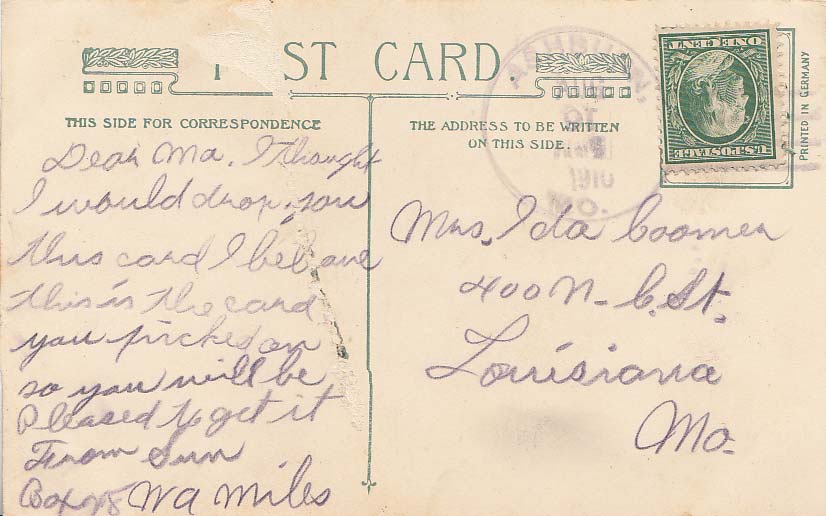 POST CARD.
THIS SIDE FOR CORRESPONDENCE
THE ADDRESS TO BE WRITTEN
ON THIS SIDE.
PRINTED IN GERMANY
ONE CENT
U.S. POSTAGE
ASHBURN,
AUG
1910
MO.
Dear Ma. I thought
I would drop you
this card I beleave
this is the card
you picked on
so you will be
Pleased to get it
From Sun
Box WA Miles
Mrs. Ida Coomer
400 N- C. St.
Louisiana
Mo.